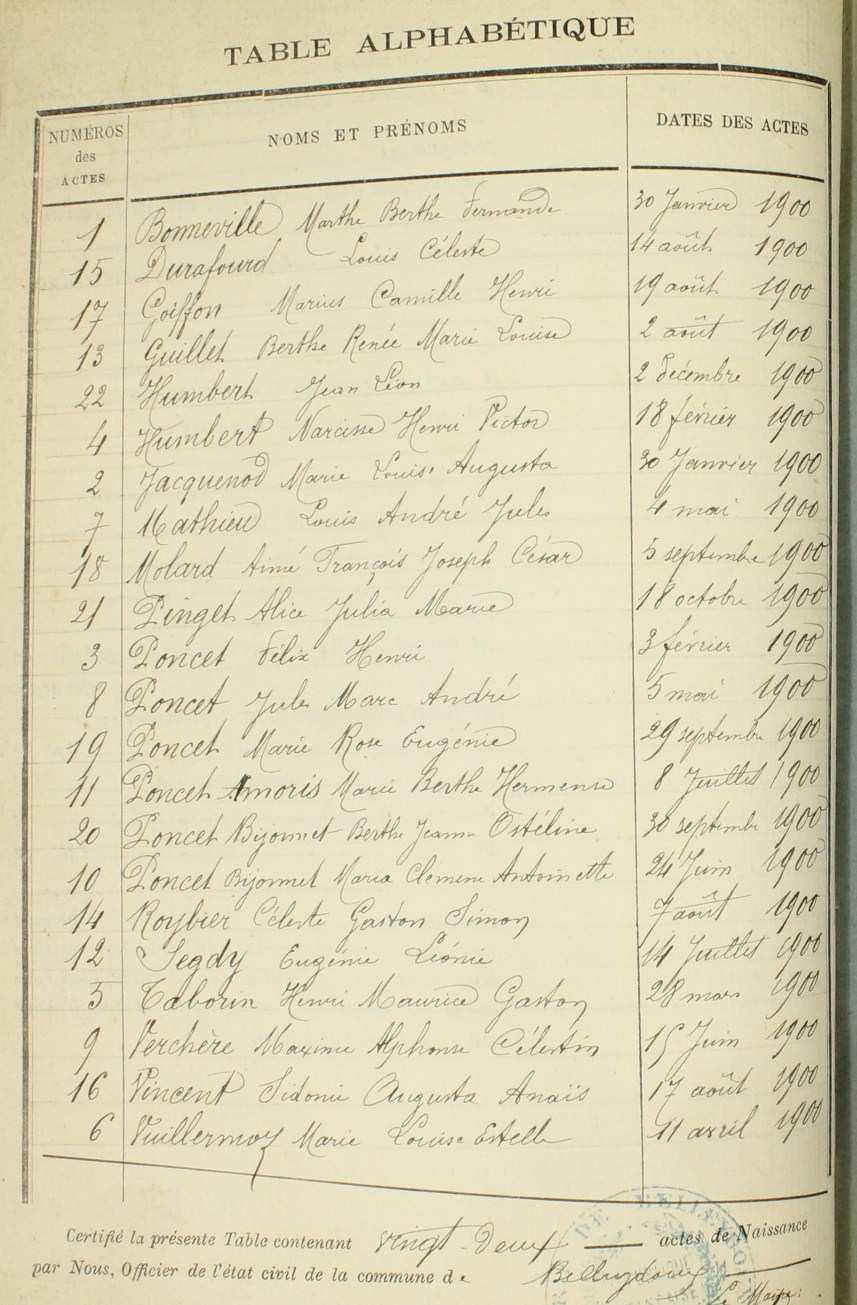 TABLE ALPHABÉTIQUE
NUMÉROS des ACTES NOMS ET PRÉNOMS DATES DES ACTES
1 Bonneville Marthe Berthe Fernande 30 Janvier 1900
15 Durafourd Louis Céleste 14 août 1900
17 Goiffon Marius Camille Henri 19 août 1900
13 Guillet Berthe Renée Marie Louise 2 août 1900
22 Humbert Jean Léon 2 décembre 1900
4 Humbert Narcisse Henri Victor 18 février 1900
2 Jacquenod Marie Louise Augusta 30 Janvier 1900
7 Mathieu Louis André Jules 4 mai 1900
18 Molard Aimé François Joseph César 5 septembre 1900
21 Pinget Alice Julia Marie 18 octobre 1900
3 Poncet Félix Henri 3 février 1900
8 Poncet Jules Marc André 5 mai 1900
19 Poncet Marie Rose Eugénie 29 septembre 1900
11 Poncet Amoris Marie Berthe Hermense 8 Juillet 1900
20 Poncet Bijonnet Berthe Jeanne Ostéline 30 septembre 1900
10 Poncet Bijonnet Maria Clemence Antoinette 24 Juin 1900
14 Roybier Céleste Gaston Simon 7 août 1900
12 Segdy Eugénie Léonie 14 Juillet 1900
5 Taborin Henri Maurice Gaston 28 mars 1900
9 Verchère Maxime Alphonse Célestin 15 Juin 1900
16 Vincent Sidonie Augusta Anaïs 17 août 1900
6 Vuillermoz Marie Louise Estelle 11 avril 1900
Certifié la présente Table contenant Vingt-Deux actes de Naissance
par Nous, Officier de l'état civil de la commune de Belleydoux
Le Maire: